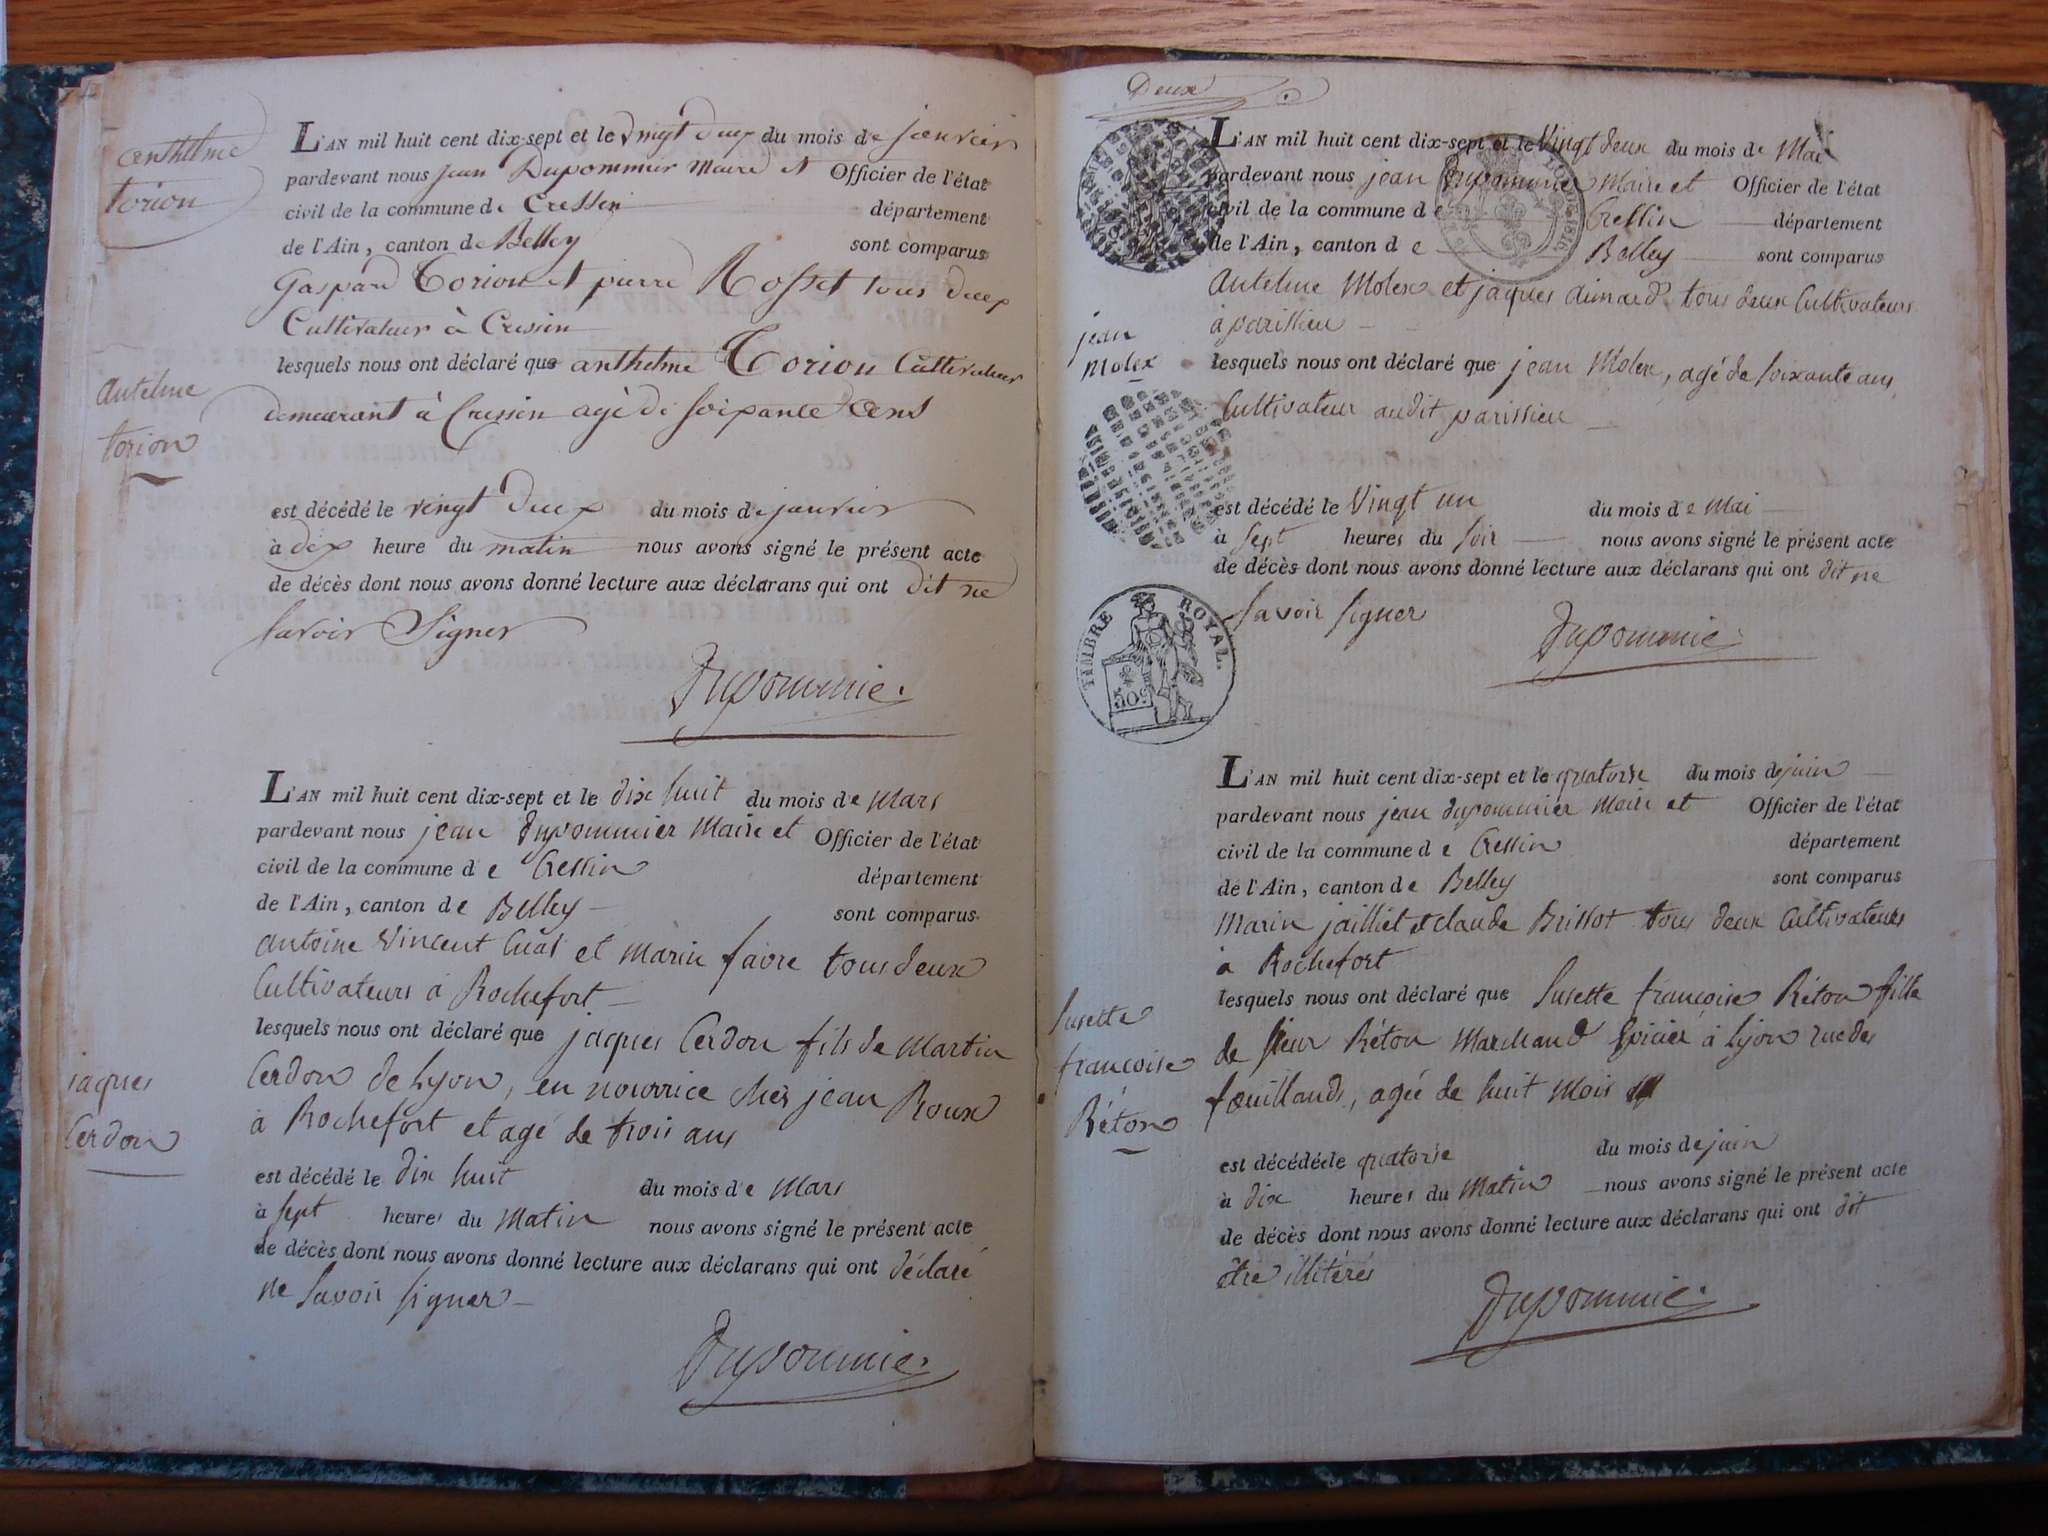 anthelme
torion
L'AN mil huit cent dix-sept et le vingt deux du mois de janvier
pardevant nous jean Dupommier Maire et Officier de l'état
civil de la commune de Cressin département
de l'Ain, canton de Belley sont comparus
Gaspard Torion et pierre Rosset tous deux
Cultivateur à Cressin
lesquels nous ont déclaré que anthelme Torion Cultivateur
antelme
torion
demeurant à Cressin agé de soixante
est décédé le vingt deux du mois de janvier
à dix heure du matin nous avons signé le présent acte
de décès dont nous avons donné lecture aux déclarans qui ont dit ne
savoir Signer
Dupommie.
L'AN mil huit cent dix-sept et le dix huit du mois de Mars
pardevant nous jean Dupommier Maire et Officier de l'état
civil de la commune de Cressin département
de l'Ain, canton de Belley sont comparus
antoine Vincent et Marin favre tous deux
Cultivateurs à Rochefort
lesquels nous ont déclaré que jaques Cerdon fils de Martin
Cerdon de Lyon, en nourrice ches jean Roux
à Rochefort et agé de trois ans
jaques
Cerdon
est décédé le dix huit du mois de Mars
à sept heures du Matin nous avons signé le présent acte
de décès dont nous avons donné lecture aux déclarans qui ont déclaré
ne savoir signer
Dupommie.
Deux
L'AN mil huit cent dix-sept et le Vingt deux du mois de Mai
pardevant nous jean Dupommier Maire et Officier de l'état
civil de la commune de Cressin département
de l'Ain, canton de Belley sont comparus
Antelme Molex et jaques aimard tous deux Cultivateurs
à parissieu
jean
Molex
lesquels nous ont déclaré que jean Molex, agé de soixante ans
Cultivateur audit parissieu
est décédé le Vingt un du mois de Mai
à sept heures du soir nous avons signé le présent acte
de décès dont nous avons donné lecture aux déclarans qui ont dit ne
savoir signer
TIMBRE ROYAL.
50c
Dupommie
L'AN mil huit cent dix-sept et le quatorse du mois de juin
pardevant nous jean dupommier Maire et Officier de l'état
civil de la commune de Cressin département
de l'Ain, canton de Belley sont comparus
Marin jailliet et claude Brissot tous deux Cultivateurs
à Rochefort
lesquels nous ont déclaré que Susette françoise Réton fille
de sieur Réton Marchand Epicier à Lyon rue des
fouillands, agée de huit Mois
Susette
françoise
Réton
est décédée le quatorse du mois de juin
à dix heures du Matin nous avons signé le présent acte
de décès dont nous avons donné lecture aux déclarans qui ont dit
être illitérés
Dupommie.